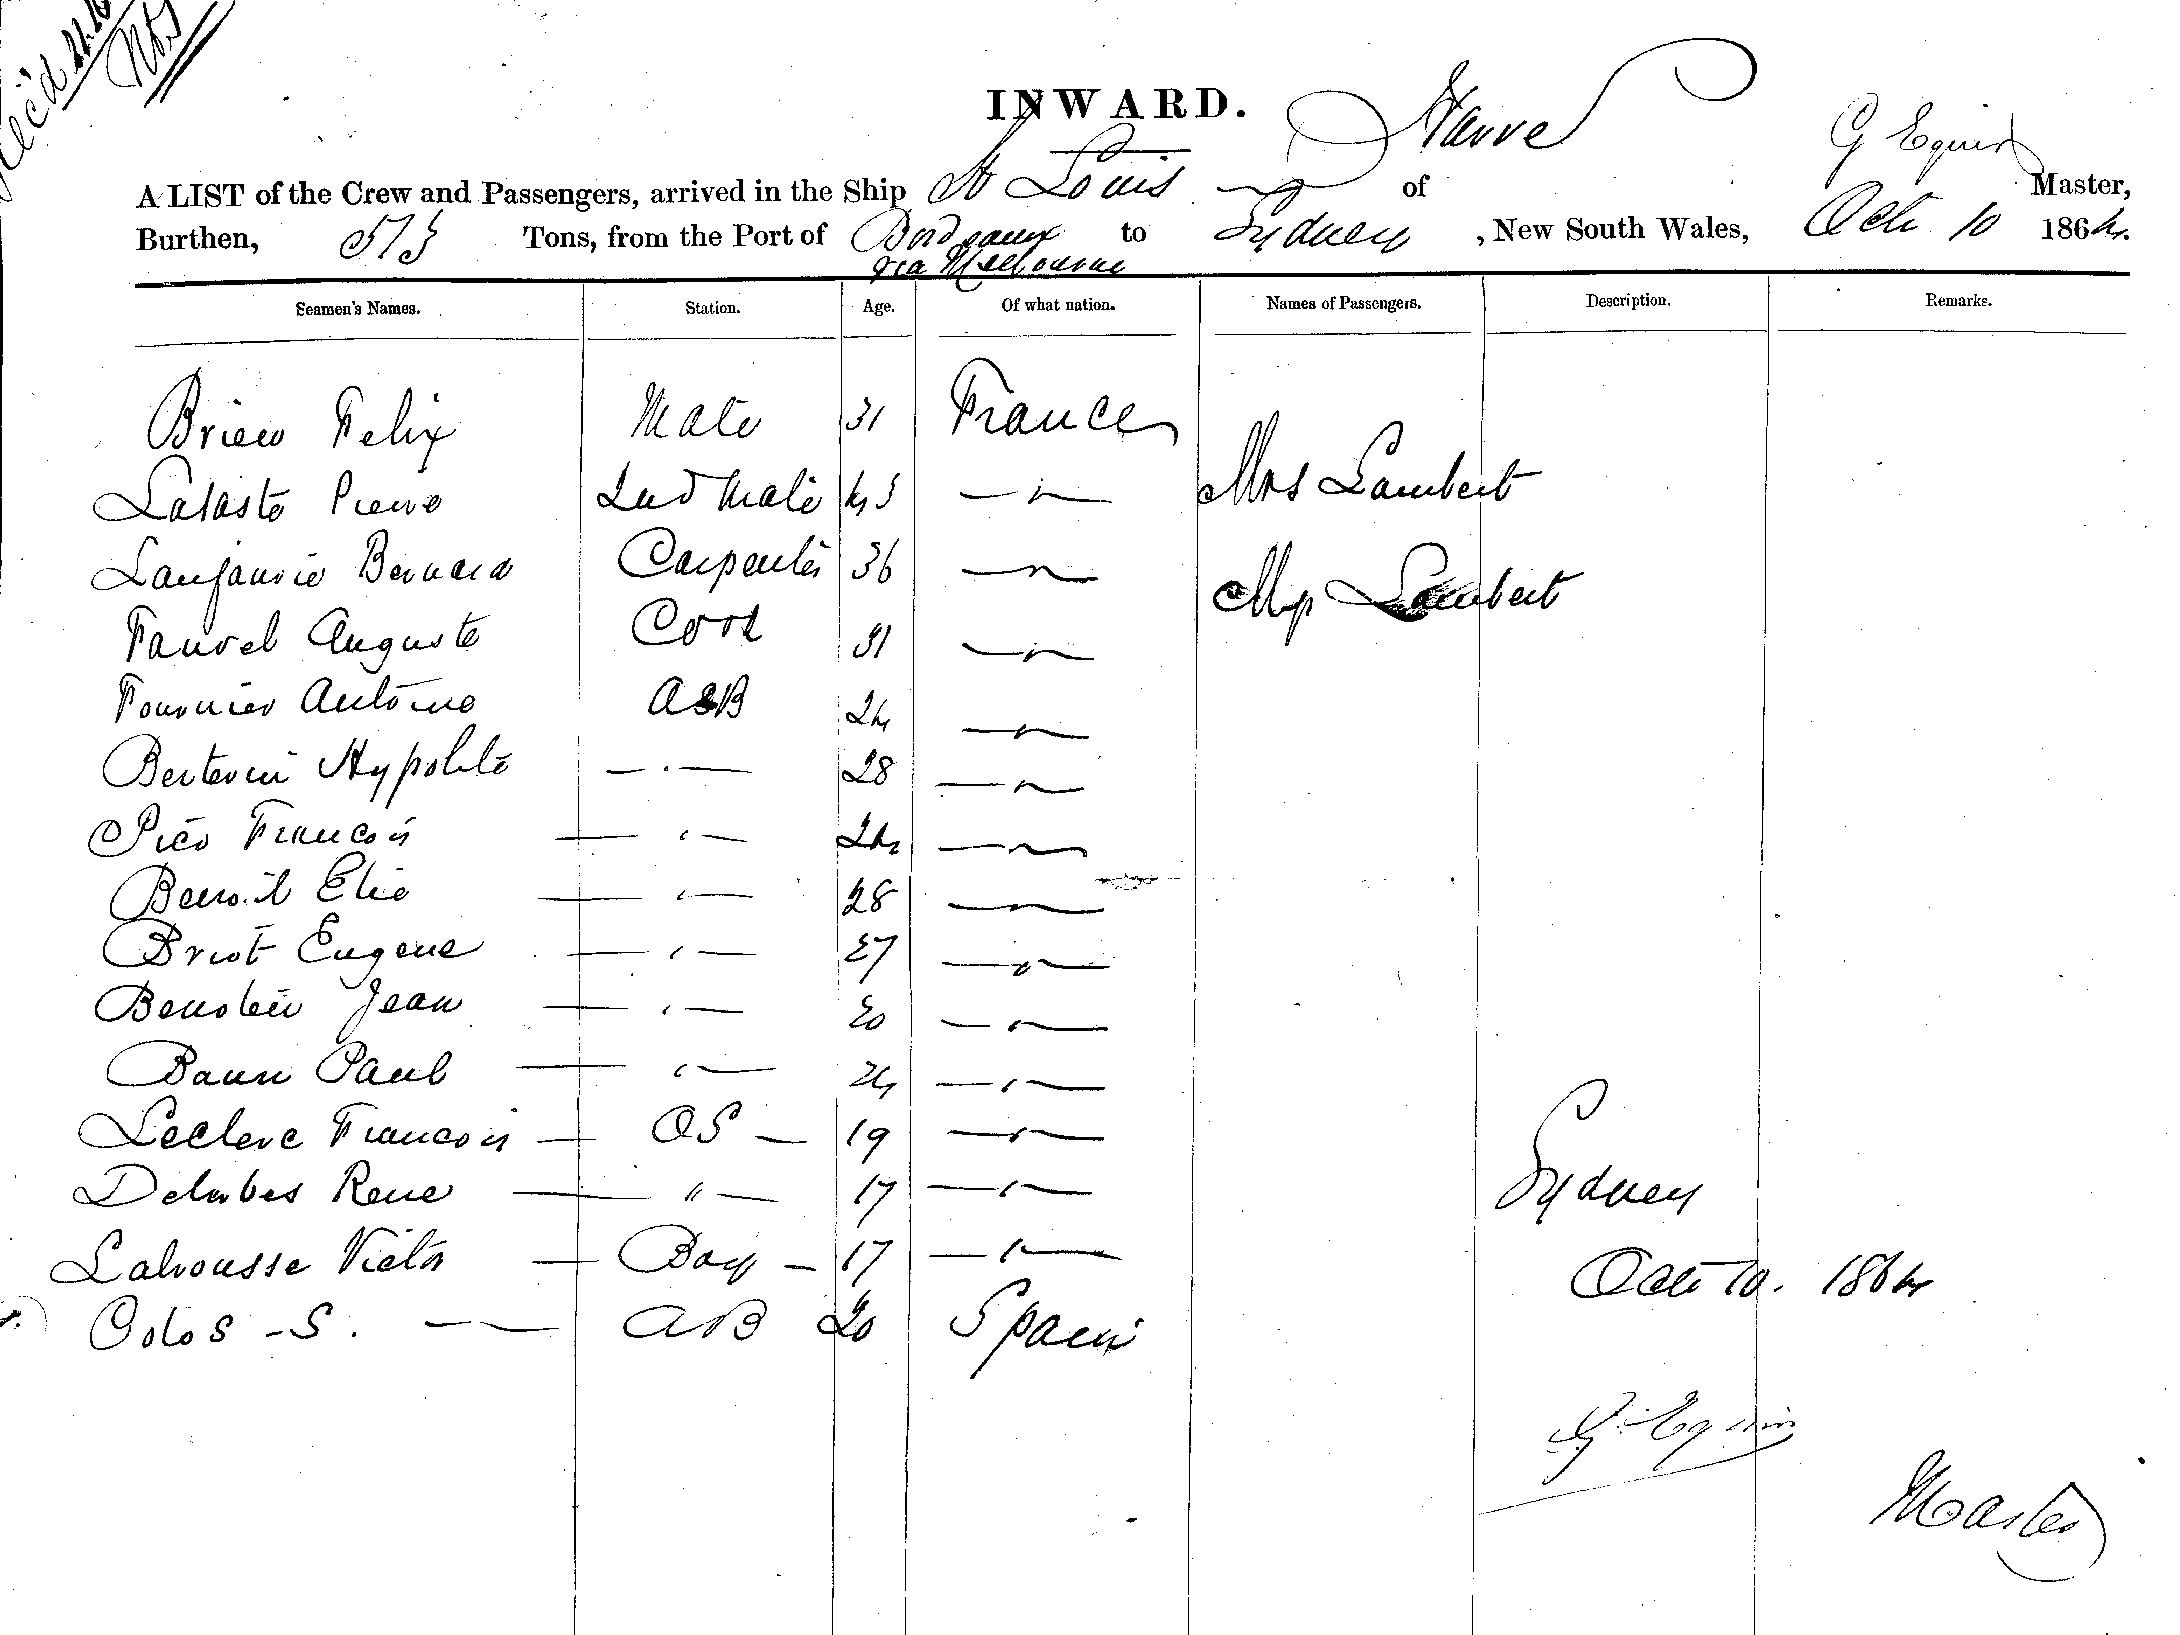 INWARD.
A LIST of the Crew and Passengers, arrived in the Ship St Louis of Havre G Equin Master,
Burthen, 513 Tons, from the Port of Bordeaux via Melbourne to Sydney, New South Wales, Oct 10 1864.
Seamen's Names. Station. Age. Of what nation. Names of Passengers. Description. Remarks.
Felix Mate 31 France
Mrs Lambert
Pierre 2nd Mate 43 — " —
Bernard Carpenter 36 — " —
Miss Lambert
Fauvel Auguste Cook 31 — " —
Fournier Antoine AB 24 — " —
Hypolite — " — 28 — " —
Francois — " — 24 — " —
Benoit Elie — " — 28 — " —
Briot Eugene — " — 27 — " —
Jean — " — 20 — " —
Paul — " — 24 — " —
Leclerc Francois — OS — 19 — " —
Rene — " — 17 — " —
Lahousse Victor — Boy — 17 — " —
S. — AB 20 Spain
Sydney
Oct 10. 1864
G Equin
Master